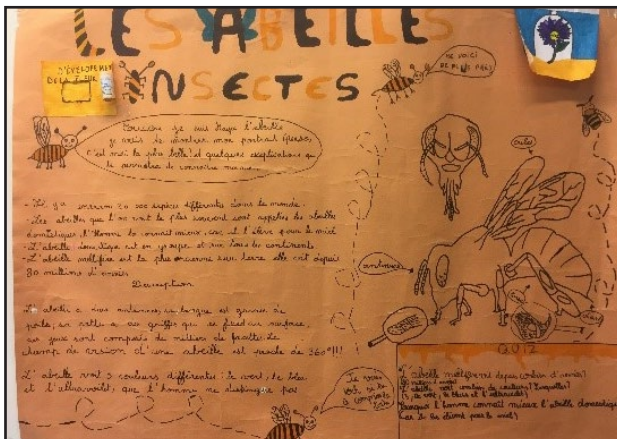 LES ABEILLES
INSECTES
D'ÉVELOPEMENT
DE LA
ME VOICI
DE PLUS PRÈS
Bonjour je suis Maya l'abeille
je vais te montrer mon portrait
c'est moi la plus belle ! et quelques explications qui
te permettra de connaître
- Il y a environ 20 000 espèces différentes dans le monde.
- Les abeilles que l'on voit le plus souvent sont appelées les abeilles
domestiques, l'Homme les connaît mieux, car il l'élève pour le miel
- L'abeille domestique vit en groupe et sur tous les continents
- L'abeille mellifère est la plus ancienne sur terre elle vit depuis
80 millions d'années
Description
L'abeille a deux antennes, sa langue est garnie de
poils, ses pattes a des griffes qui se fixe aux surfaces
ses yeux sont composés de milliers de facettes. Le
champ de vision d'une abeille est proche de 360° !!!
L'abeille voit 3 couleurs différentes : le vert, le bleu
et l'ultraviolet, que l'homme ne distingue pas
ailes
antennes
QUIZ
L'abeille mellifère vit depuis combien d'années ?
L'abeille voit combien de couleurs ? Lesquelles ?
(3, le vert, le bleu et l'ultraviolet)
Pourquoi l'homme connaît mieux l'abeille domestique
(car il les élèvent pour le miel)